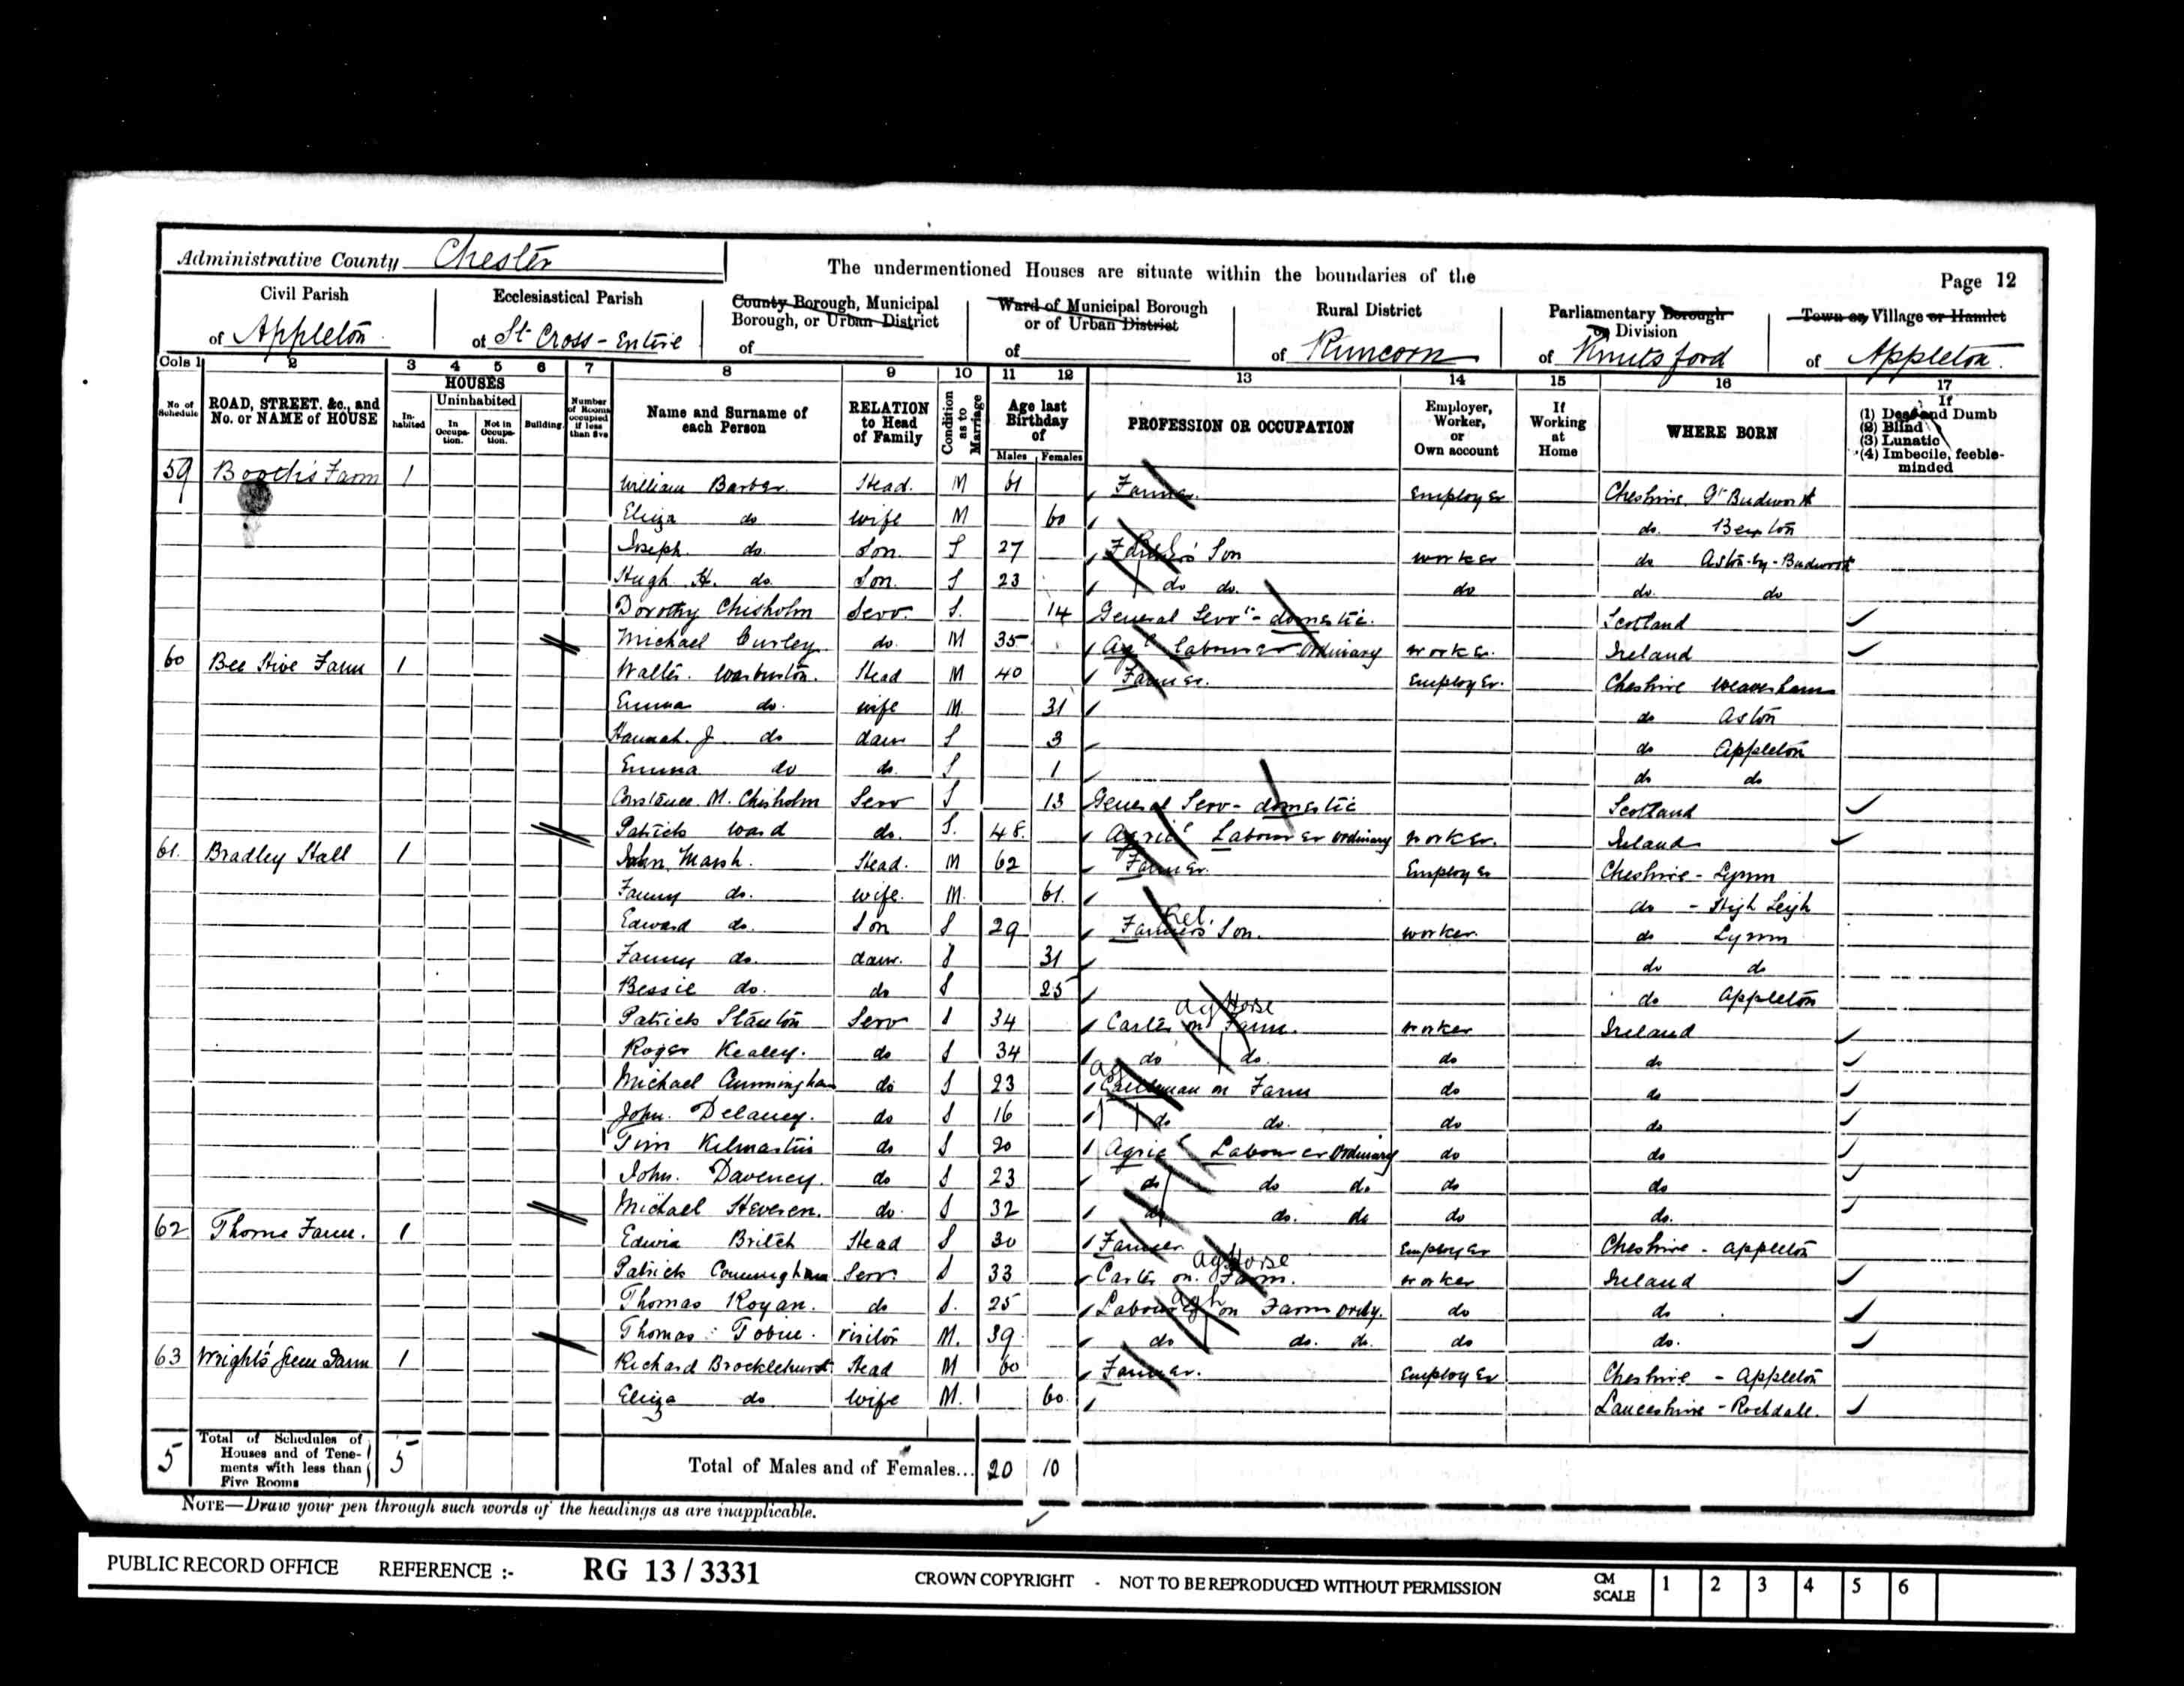 Administrative County Chester
The undermentioned Houses are situate within the boundaries of the
Page 12
Civil Parish of Appleton
Ecclesiastical Parish of St Cross - Entire
County Borough, Municipal Borough, or Urban District of
Ward of Municipal Borough or of Urban District of
Rural District of Runcorn
Parliamentary Borough or Division of Knutsford
Town or Village or Hamlet of Appleton.
Cols 1 2 3 4 5 6 7 8 9 10 11 12 13 14 15 16 17
No. of Schedule
ROAD, STREET, &c., and No. or NAME of HOUSE
HOUSES
Inhabited
Uninhabited
In Occupation.
Not in Occupation.
Building.
Number of Rooms occupied if less than five
Name and Surname of each Person
RELATION to Head of Family
Condition as to Marriage
Age last Birthday of
Males Females
PROFESSION OR OCCUPATION
Employer, Worker, or Own account
If Working at Home
WHERE BORN
If
(1) Deaf and Dumb
(2) Blind
(3) Lunatic
(4) Imbecile, feeble-minded
59 Booth's Farm 1 William Barber. Head. M 61 Farmer. Employer Cheshire. Gt Budworth
Eliza do wife M 60 do.
Joseph do. Son. S 27 Farmer's Son worker do Aston-by-Budworth
Hugh H. do. Son. S 23 do do. do do. do
Dorothy Chisholm Serv. S. 14 General Servt - domestic. Scotland
Michael Curley do. M 35 Agl Labourer Ordinary worker. Ireland
60 Bee Hive Farm 1 Walter. Warburton. Head M 40 Farmer. Employer. Cheshire Weaverham
Emma do. wife M. 31 do Aston
Hannah. J. do daur S 3 do Appleton
Emma do do. S 1 do do
Constance. M. Chisholm Serv S 13 General Serv - domestic Scotland
Patrick Ward do. S. 48. Agricl Labourer ordinary worker. Ireland
61. Bradley Hall 1 John Marsh. Head. M 62 Farmer. Employer Cheshire - Lymm
Fanny do. wife. M. 61. do - High Leigh
Edward do. Son S 29 Farmers' Son. Rel. worker. do Lymm
Fanny do. daur. S 31 do do
Bessie do. do S 25 do Appleton
Patrick Stanton Serv S 34 Carter on Farm. Ag Horse worker Ireland
Roger Kealey. do S 34 do do. do do
Michael Cunningham do S 23 Cattleman on Farm do do
John. Delaney. do S 16 do do. do do
Tim Kilmartin do S 20 Agricl Labourer Ordinary do do
John. Daveney. do S 23 do do do do do
Michael Heveren. do. S 32 do do. do do do.
62 Thorne Farm. 1 Edwin Britch Head S 30 Farmer Employer Cheshire - Appleton
Patrick Cunningham Serv. S 33 Carter on. Farm. Ag Horse worker Ireland
Thomas Royan. do S. 25 Labourer on Farm ordy. do do
Thomas Tobin. Visitor M. 39 do do. do. do do.
63 Wright's Green Farm 1 Richard Brocklehurst Head M 60 Farmer. Employer Cheshire - Appleton
Eliza do wife M. 60. Lancashire - Rochdale.
5 Total of Schedules of Houses and of Tenements with less than Five Rooms 5
Total of Males and of Females... 20 10
NOTE—Draw your pen through such words of the headings as are inapplicable.
PUBLIC RECORD OFFICE REFERENCE :- RG 13 / 3331 CROWN COPYRIGHT - NOT TO BE REPRODUCED WITHOUT PERMISSION CM SCALE 1 2 3 4 5 6